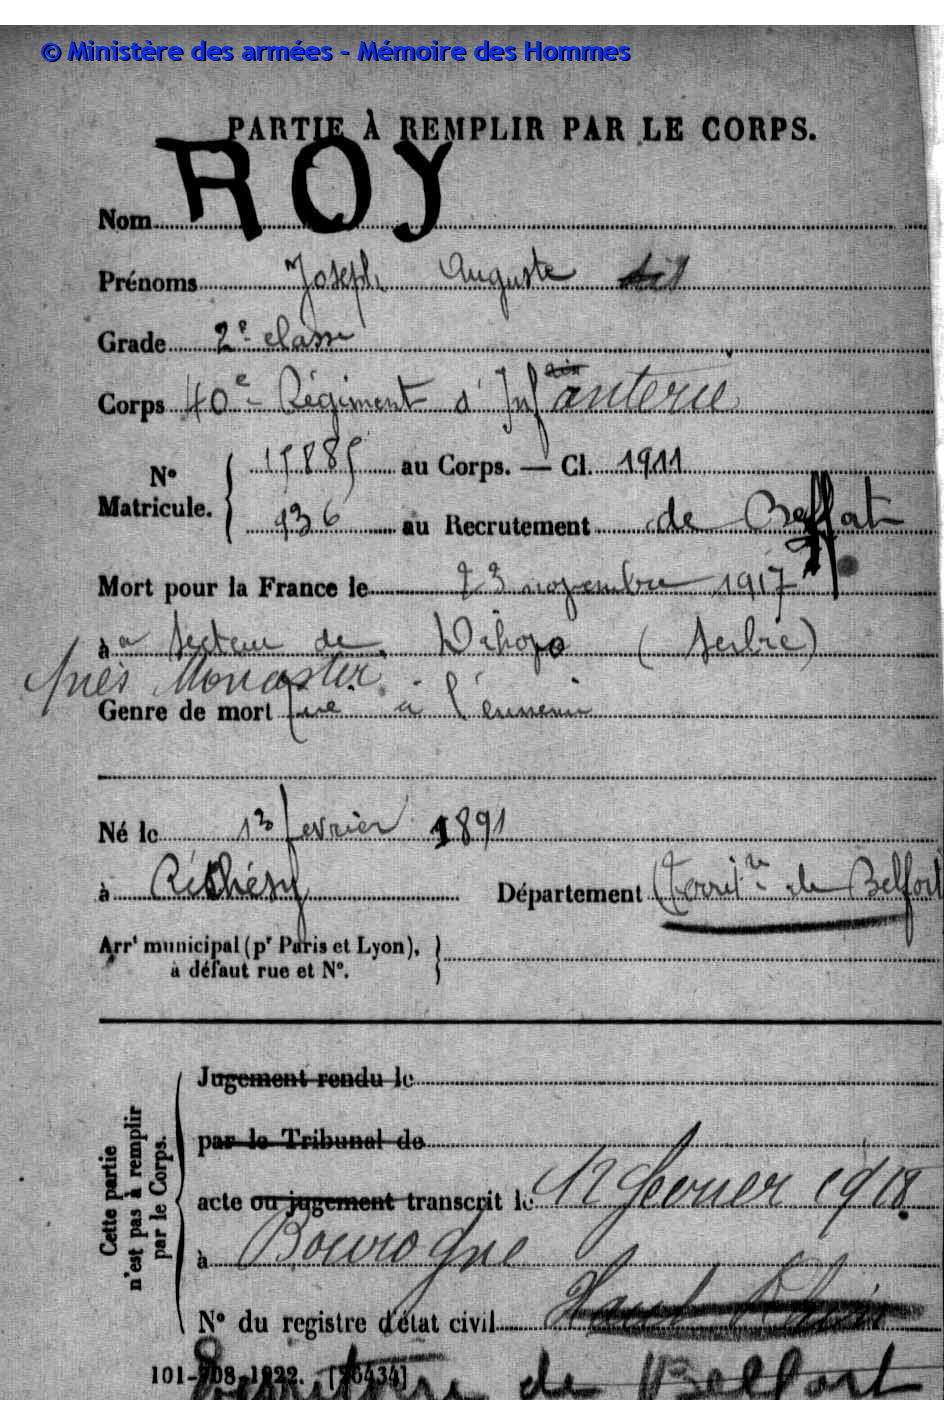 © Ministère des armées - Mémoire des Hommes
PARTIE À REMPLIR PAR LE CORPS.
Nom ROY
Prénoms Joseph Auguste
Grade 2e classe
Corps 40e Régiment d'Infanterie
N° Matricule. 15885 au Corps. — Cl. 1911
936 au Recrutement de Belfort
Mort pour la France le 23 novembre 1917
à secteur de Dihovo (Serbie)
près Monastir
Genre de mort Tué à l'ennemi
Né le 13 février 1891
à Réchésy Département (Territre de Belfort
Arrt municipal (pr Paris et Lyon),
à défaut rue et N°.
Cette partie
n'est pas à remplir
par le Corps.
Jugement rendu le
par le Tribunal de
acte ou jugement transcrit le 12 février 1918.
à Bourogne
N° du registre d'état civil Haut Rhin
101-708-1922. [26434]
Territoire de Belfort